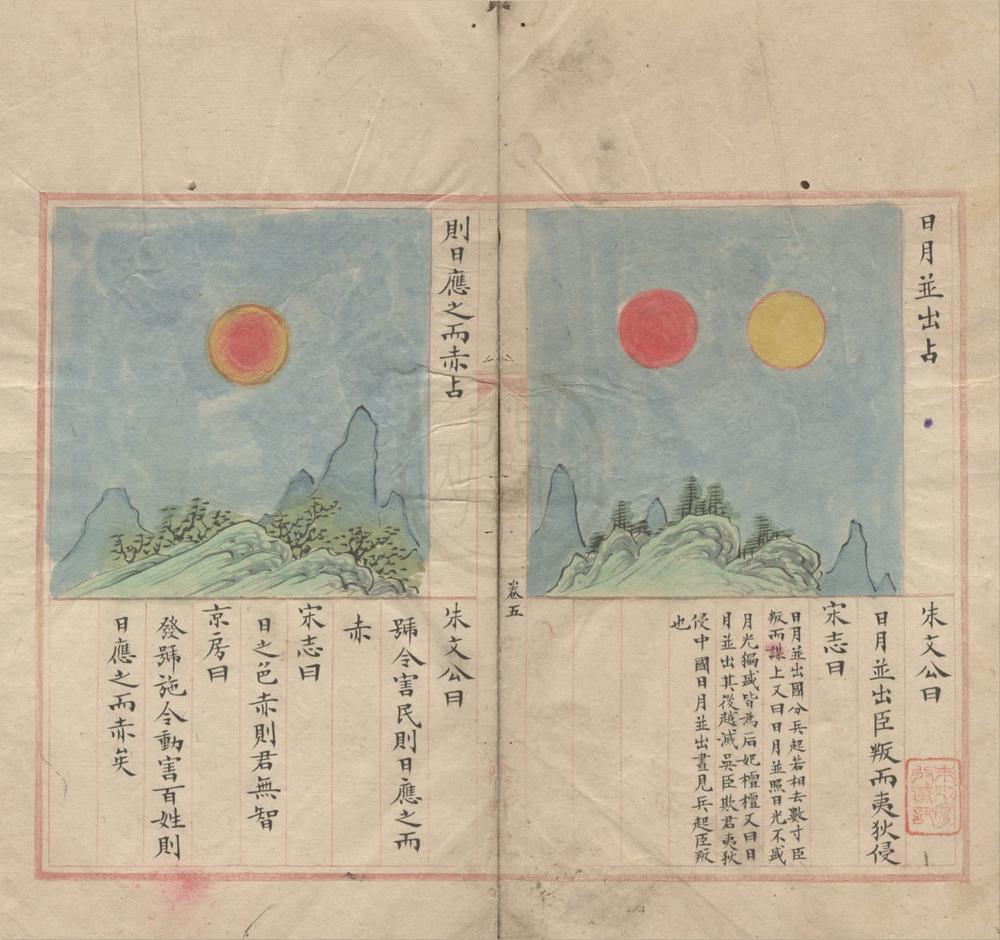 日月並出占
朱文公曰
日月並出臣叛而夷狄侵
宋志曰
日月並出國分兵起若相去數寸臣
叛而謀上又曰日月並照日光不盛
月光獨盛皆為后妃檀檀又曰日
月並出其後越滅吳臣欺君夷狄
侵中國日月並出晝見兵起臣叛
也
卷五
則日應之而赤占
朱文公曰
號令害民則日應之而
赤
宋志曰
日之色赤則君無智
京房曰
發號施令動害百姓則
日應之而赤矣